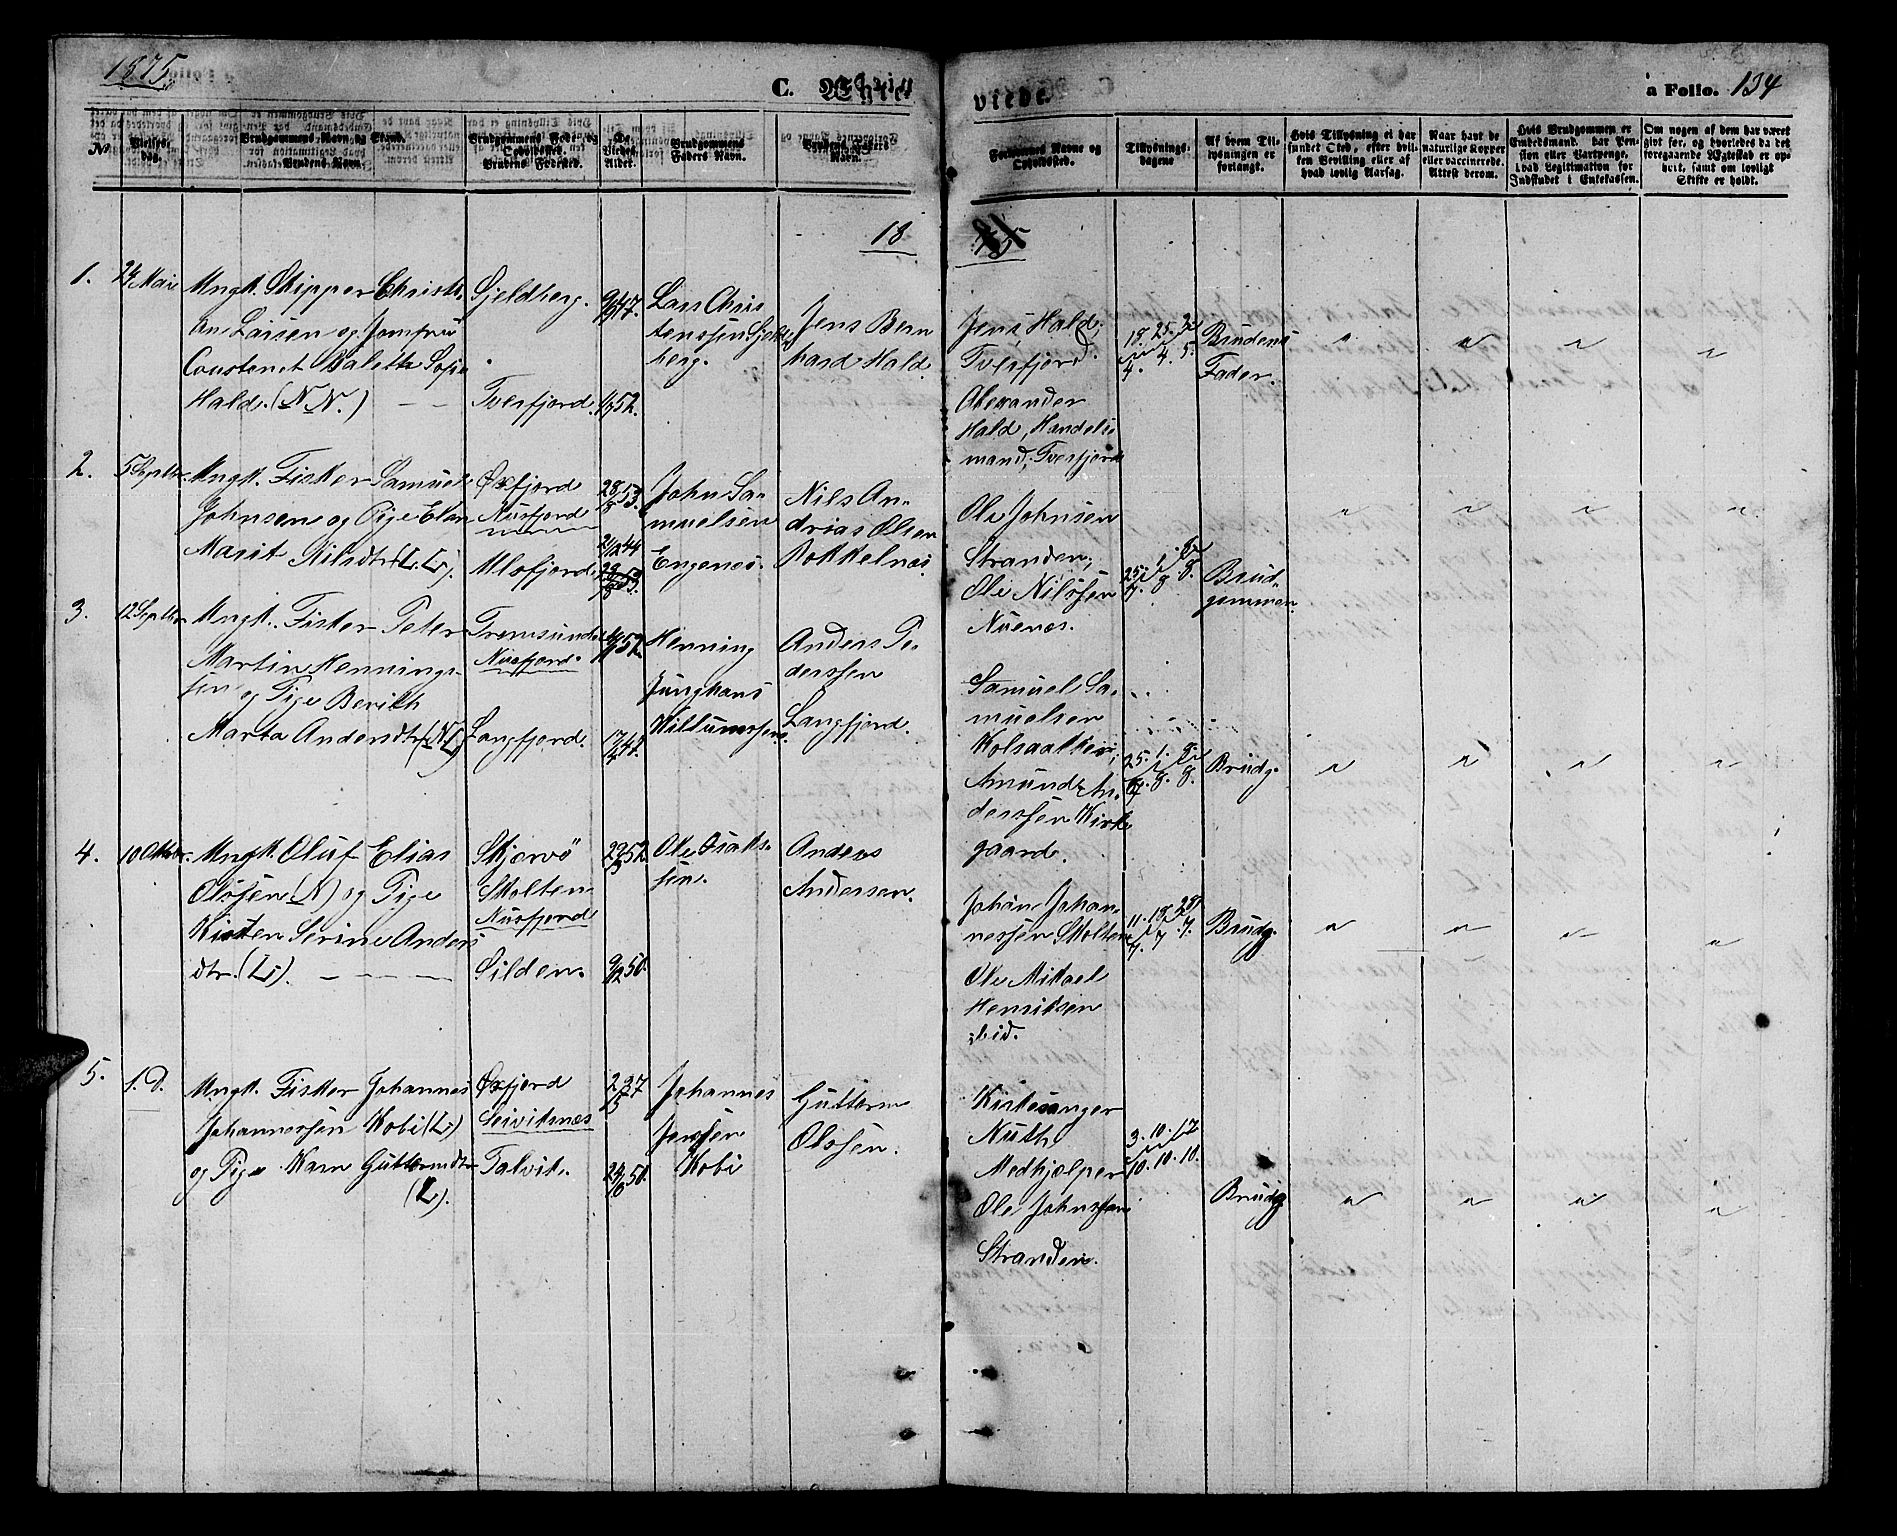 1875.
C. Ægte
viede.
a Folio. 134
No
Vielses-
dag.
Brudgommens Navn og Stand.
Brudens Navn.
Brudgommens Føde- og
Opholdssted.
Brudens Fødested.
De
Viedes
Alder.
Brudgommens
Faders Navn.
Brudens Faders
Navn.
Forlovernes Navne og
Opholdssted.
Tillysnings-
dagene
Af hvem Til-
lysningen er
forlangt.
Hvis Tillysning ei har
fundet Sted, efter hvil-
ken Bevilling eller af
hvad lovlig Aarsag.
Naar havt de
naturlige Kopper
eller vaccinerede.
Attest derom.
Hvis Brudgommen er
Embedsmand, har Pen-
sion eller Vartpenge,
hvad Legitimation for
Indskudet i Enkekassen.
Om nogen af dem har været
gift før, og hvorledes da det
foregaaende Ægteskab er op-
hørt, samt om lovligt
Skifte er holdt.
18
1.
24 Mai
Ungk. Skipper Christi-
an Larsen og Jomfru
Constance Valette Sofie
Hald. (N N.)
Sjeldberg.
Tverfjord.
9/3 47.
52.
Lars Chris
tenssen Sjeld
berg.
Jens Bern
hard Hald.
Jens Hald,
Tverfjord.
Alexander
Hald, Handels-
mand, Tverfjord
18. 25. 2
4. 4. 5.
Brudens
Fader.
2.
5 Septbr.
Ungk. Fisker Samuel
Johnsen og Pige Elen
Marit Nilsdtr (L. L.).
Øxfjord
Nusfjord
Ulsfjord
28/8 53.
21/12 44
John Sa-
muelsen
Engenes.
Nils An-
drias Olsen
Bokkelnes.
Ole Johnsen
Stranden,
Ole Nilssen
Nuenes.
25. 1. 8.
7. 8. 8.
Brud-
gommen
3.
12 Septbr
Ungk. Fisker Peter
Martin Hennings-
sen og Pige Berith
Marta Andersdtr (N. L.)
Tromsund
Nusfjord.
Langfjord.
52.
17/4 47.
Henning
Junghans
Killumssen
Anders Pe-
derssen
Langfjord.
Samuel Sa-
muelsen
Kolsaatken,
Amund An-
derssen Kirke
gaard.
25. 1. 8.
7. 8. 8.
Brudg.
4.
10 Oktbr.
Ungk. Oluf Elias
Olssen (N) og Pige
Kirsten Serine Anders
dtr. (L).
Skjervö
Skolten
Nusfjord
Silden.
22/3 52.
9/2 50.
Ole Isaks-
sen.
Anders
Andersen.
Johan Johan-
nessen Skolten
Ole Mikael
Henriksen
ibid.
11. 18. 25
7. 7. 7.
Brudg.
5.
1. D.
Ungk. Fisker Johannes
Johannessen Kobi (L)
og Pige Karn Guttormdtr
(L).
Øxfjord
Leiviksnes
Talvik.
2/5 37
24/8 50.
Johannes
Jenssen
Kobi
Guttorm
Olssen.
Kirkesanger
Nuth
Medhjælper
Ole Johnssen
Stranden.
3. 10. 17
10. 10. 10.
Brudg.